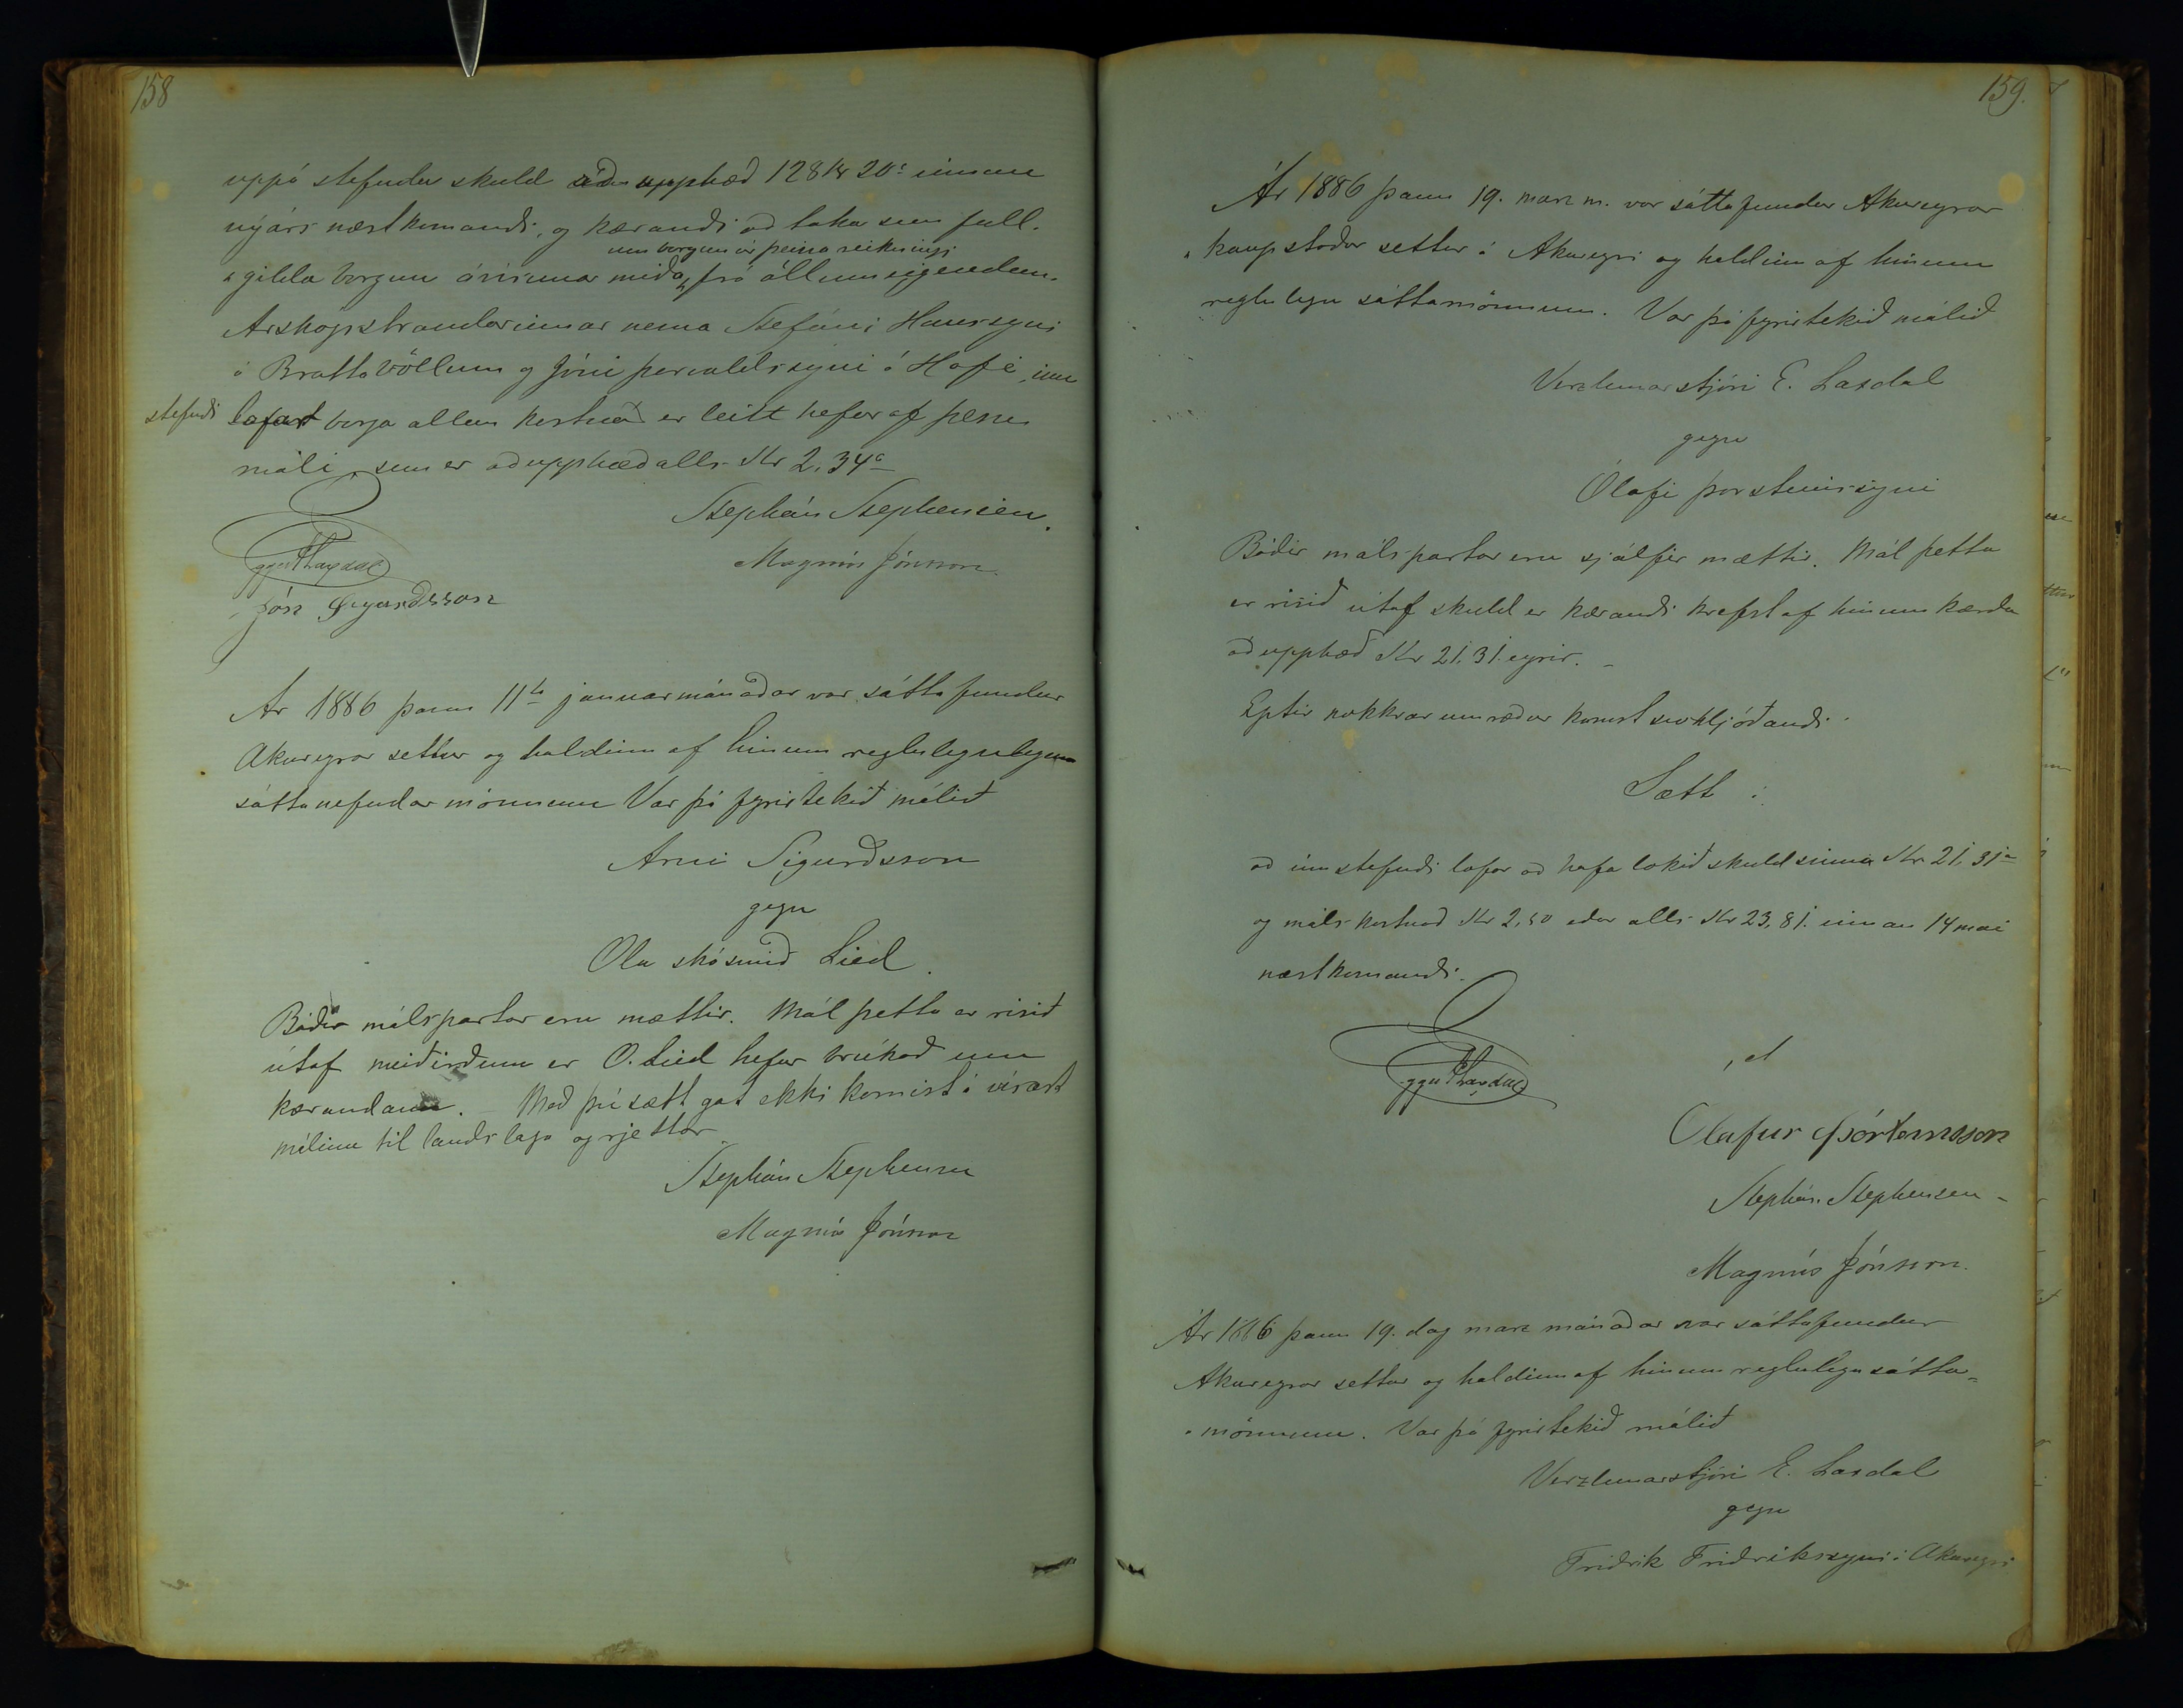 158
uppá stefndu skuld að upphæð 128 kr 20 a innan
nýárs næstkomandi, og kærandi að taka sem full-
um borgun úr þeirra reikningi
gilda borgun ávísunar miða frá öllum eigendum
Árskógsstrandarinnar nema Stefáni Hanssyni
á Brattavöllum og Jóni þorvaldssyni á Hofi, inn
stefndi lofast borga allan kostnað er leitt hefur af þessu
máli, sem er að upphæð alls Kr 2,34 a
Stephán Stephensen.
Eggert Laxdal
Magnús Jónsson.
Jón Sigurðsson
Ár 1886 þann 11ta januarmánaðar var sáttafundur
Akureyrar settur og haldinn af hinum reglulegulegum
sáttanefndarmönnum Var þá fyrirtekið málið
Arni Sigurðsson
gegn
Ola skósmið Lied.
Báðir málspartar eru mættir. Mál þetta er risið
útaf meiðirðum er O. Lied hefur brúkað um
kærandann. - Með því sætt gat ekki komist á vísast
málinu til landslaga og rjettar
Stephán Stephensen
Magnús Jónsson
159.
Ár 1886 þann 19. marz m. var sáttafundur Akureyrar
kaupstaðar settur á Akureyri og haldinn af hinum
reglulegu sáttamönnum. Var þá fyrirtekið málið
Verzlunarstjóri E. Laxdal
gegn
Ólafi þorsteinssyni
Báðir málspartar eru sjálfir mættir. Mál þetta
er risið útaf skuld er kærandi krefst af hinum kærða
að upphæð Kr 21,31 eyrir. -
Eptir nokkrar umræður komst svohljóðandi
Sætt:
að innstefndi lofar að hafa lokið skuld sinni Kr 21,31 a
og málskostnað Kr 2,50 eða alls Kr 23,81. innan 14 mai
næstkomandi.
Eggert Laxdal
Olafur Þórsteinsson
Stephán Stephensen -
Magnús Jónsson.
Ár 1886 þann 19. dag marz mánaðar var sáttafundur
Akureyrar settur og haldinn af hinum reglulegu sátta-
mönnum. Var þá fyrirtekið málið
Verzlunarstjóri E. Laxdal
gegn
Friðrik Friðrikssyni í Akureyri